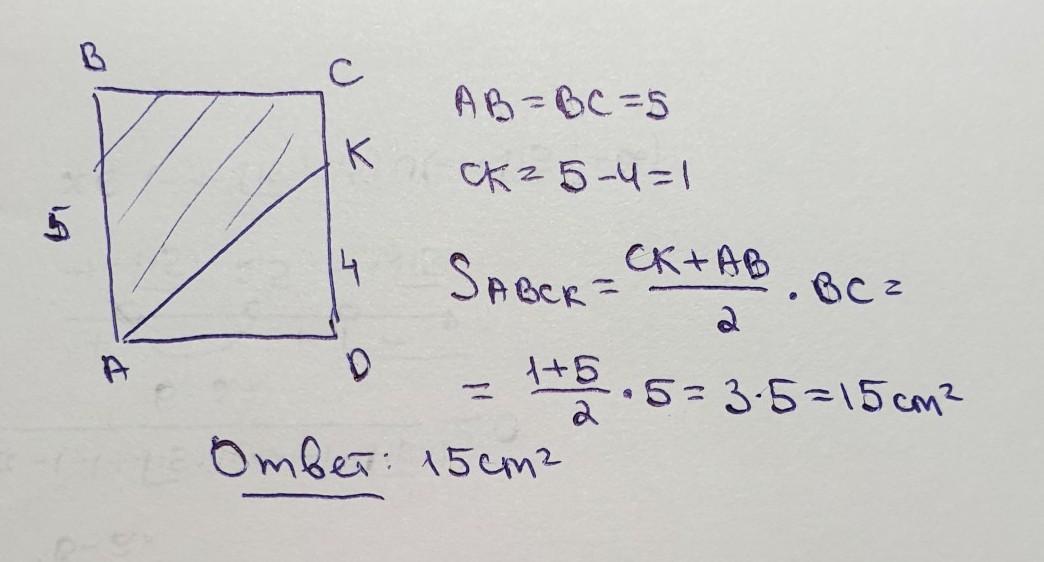 B
C
K
5
4
A
D
AB = BC = 5
CK = 5 - 4 = 1
S_ABCK = (CK + AB)/2 · BC =
= (1+5)/2 · 5 = 3 · 5 = 15 cm²
Ответ: 15 cm²